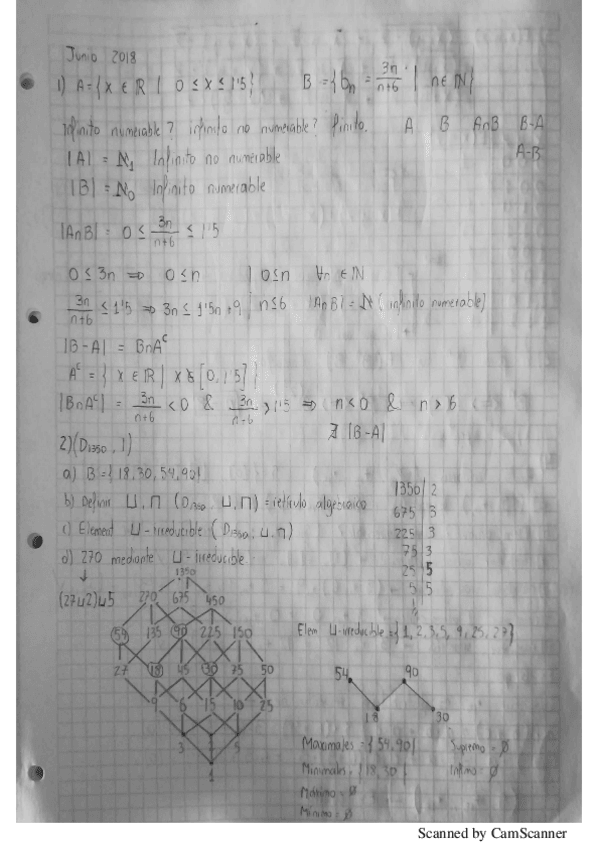 Junio 2018
1) A = {x ∈ ℝ | 0 ≤ x ≤ 1'5} B = {b_n = 3n/(n+6) | n ∈ ℕ}
Infinito numerable? infinito no numerable? finito. A B A∩B B-A
A-B
|A| = ℵ₁ Infinito no numerable
|B| = ℵ₀ Infinito numerable
|A∩B| = 0 ≤ 3n/(n+6) ≤ 1'5
0 ≤ 3n ⇒ 0 ≤ n | 0 ≤ n ∀n ∈ ℕ
3n/(n+6) ≤ 1'5 ⇒ 3n ≤ 1'5n + 9 | n ≤ 6 |A∩B| = ℵ (infinito numerable)
|B-A| = B∩Aᶜ
Aᶜ = {x ∈ ℝ | x ∉ [0, 1'5]}
|B∩Aᶜ| = 3n/(n+6) < 0 & 3n/(n+6) > 1'5 ⇒ n < 0 & n > 6
∄ |B-A|
2) (D₁₃₅₀, |)
a) B = {18, 30, 54, 90}
b) Definir ⊔, ⊓ (D₁₃₅₀, ⊔, ⊓) = retículo algebraico
c) Element ⊔-irreducible (D₁₃₅₀, ⊔, ⊓)
d) 270 mediante ⊔-irreducible
↓
(27⊔2)⊔5
1350 | 2
675 | 3
225 | 3
75 | 3
25 | 5
5 | 5
1
1350
270 675 450
54 135 90 225 150
27 18 45 30 75 50
9 6 15 10 25
3 2 5
1
Elem ⊔-irreducible = {1, 2, 3, 5, 9, 25, 27}
54 90
18 30
Maximales = {54, 90} Supremo = ∅
Minimales = {18, 30} Infimo = ∅
Máximo = ∅
Mínimo = ∅
Scanned by CamScanner